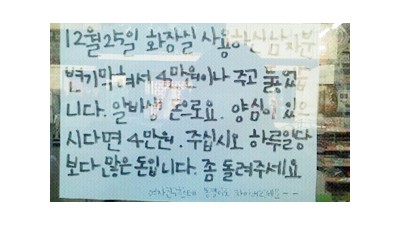 12월25일 화장실 사용하신 남자분
변기막혀서 4만원이나 주고 뚫었
니다. 알바생 돈으로요. 양심이 있
시다면 4만원. 주십시오 하루일당
보다 많은 돈입니다. 좀 돌려주세요
여자친구한테